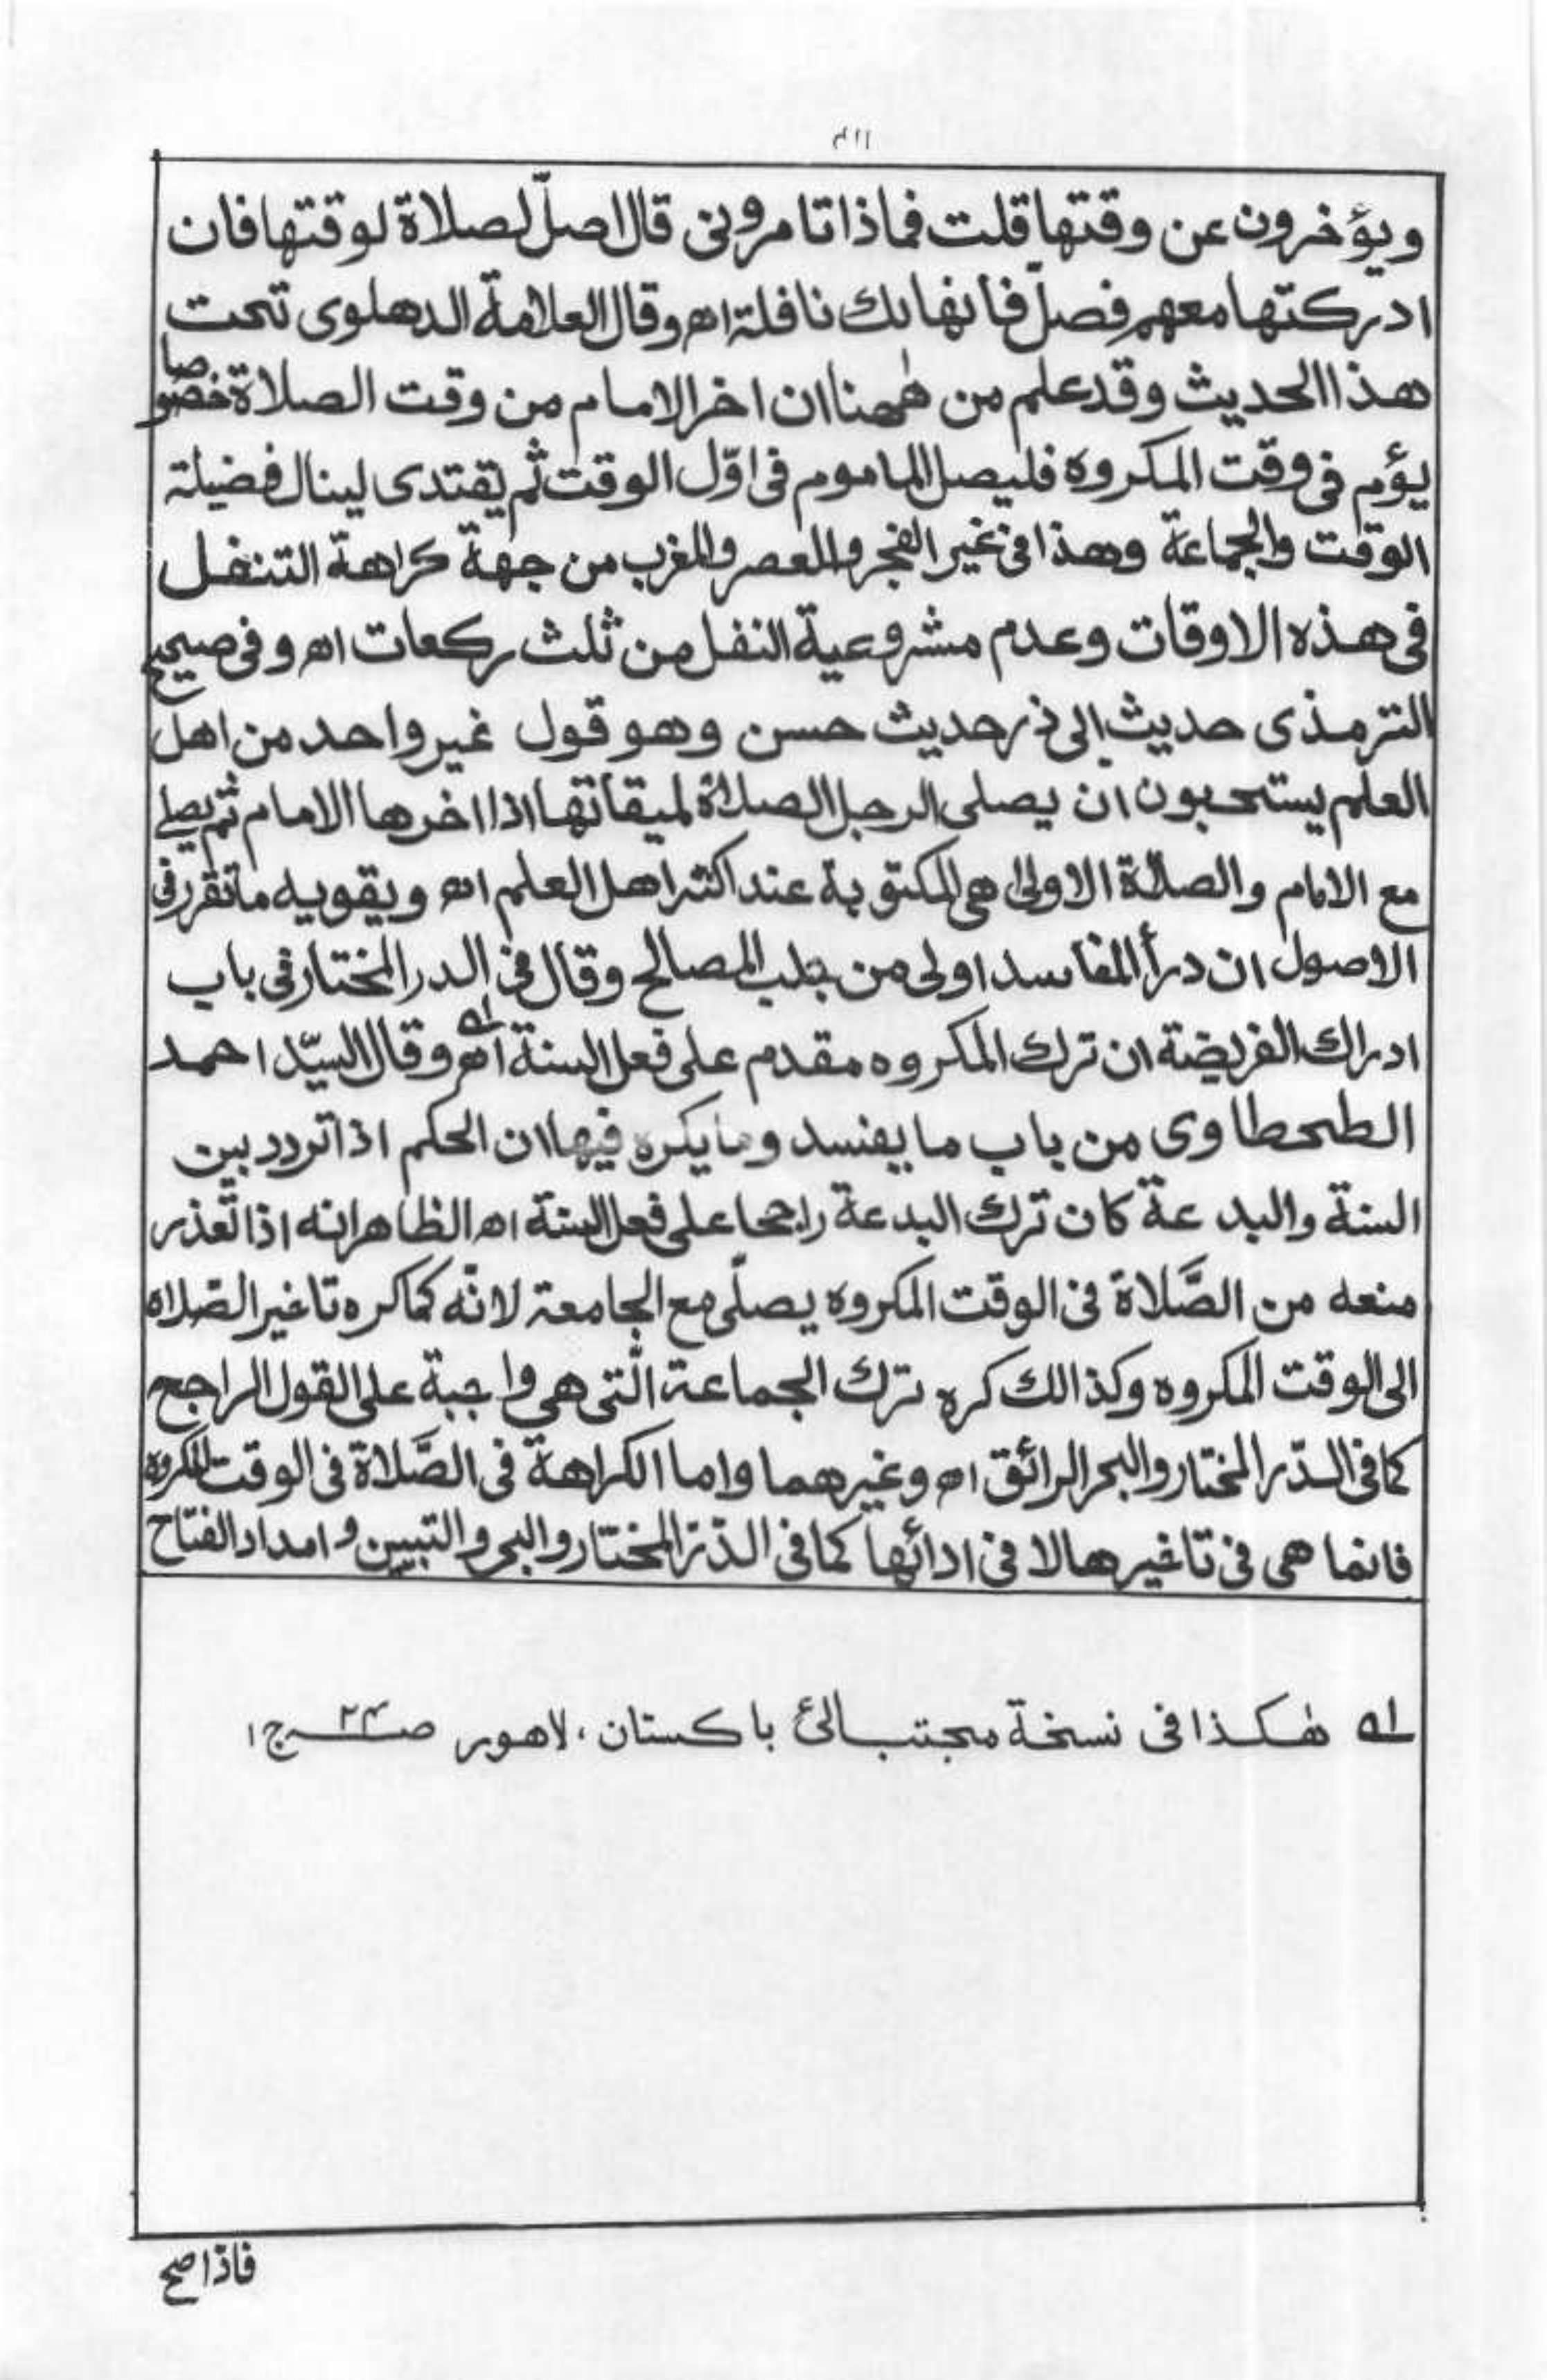 ويؤخرون عن وقتها قلت فماذا تامرونى قال صلّ لصلاة لوقتها فان
ادركتها معهم فصلّ فانها لك نافلة اه وقال العلامة الدهلوى تحت
هذا الحديث وقد علم من ههنا ان اخر الامام من وقت الصلاة خصوصا
يؤم فى وقت المكروه فليصل الماموم فى اوّل الوقت ثم يقتدى لينال فضيلة
الوقت والجماعة وهذا فى غير الفجر والعصر والمغرب من جهة كراهة التنفل
فى هذه الاوقات وعدم مشروعية النفل من ثلث ركعات اه وفى صحيح
الترمذى حديث ابى ذر حديث حسن وهو قول غير واحد من اهل
العلم يستحبون ان يصلى الرجل الصلاة لميقاتها اذا اخرها الامام ثم يصلى
مع الامام والصلاة الاولى هى المكتوبة عند اكثر اهل العلم اه ويقويه ما تقرر فى
الاصول ان درأ المفاسد اولى من جلب المصالح وقال فى الدر المختار فى باب
ادراك الفريضة ان ترك المكروه مقدم على فعل السنة اه له وقال السيّد احمد
الطحطاوى من باب ما يفسد وما يكره فيها ان الحكم اذا تردد بين
السنة والبدعة كان ترك البدعة راجحا على فعل السنة اه الظاهر انه اذا تعذر
منعه من الصَّلاة فى الوقت المكروه يصلّى مع الجامعة لانّه كما كره تاخير الصّلاه
الى الوقت المكروه وكذالك كره ترك الجماعة الّتى هى واجبة على القول الراجح
كما فى الدّر المختار والبحر الرائق اه وغيرهما واما الكراهة فى الصَّلاة فى الوقت المكروه
فانما هى فى تاخيرها لا فى ادائها كما فى الدّر المختار والبحر والتبيين و امداد الفتاح
له هٰكذا فى نسخة مجتبائى باكستان، لاهور ص ج ١
فاذا صح